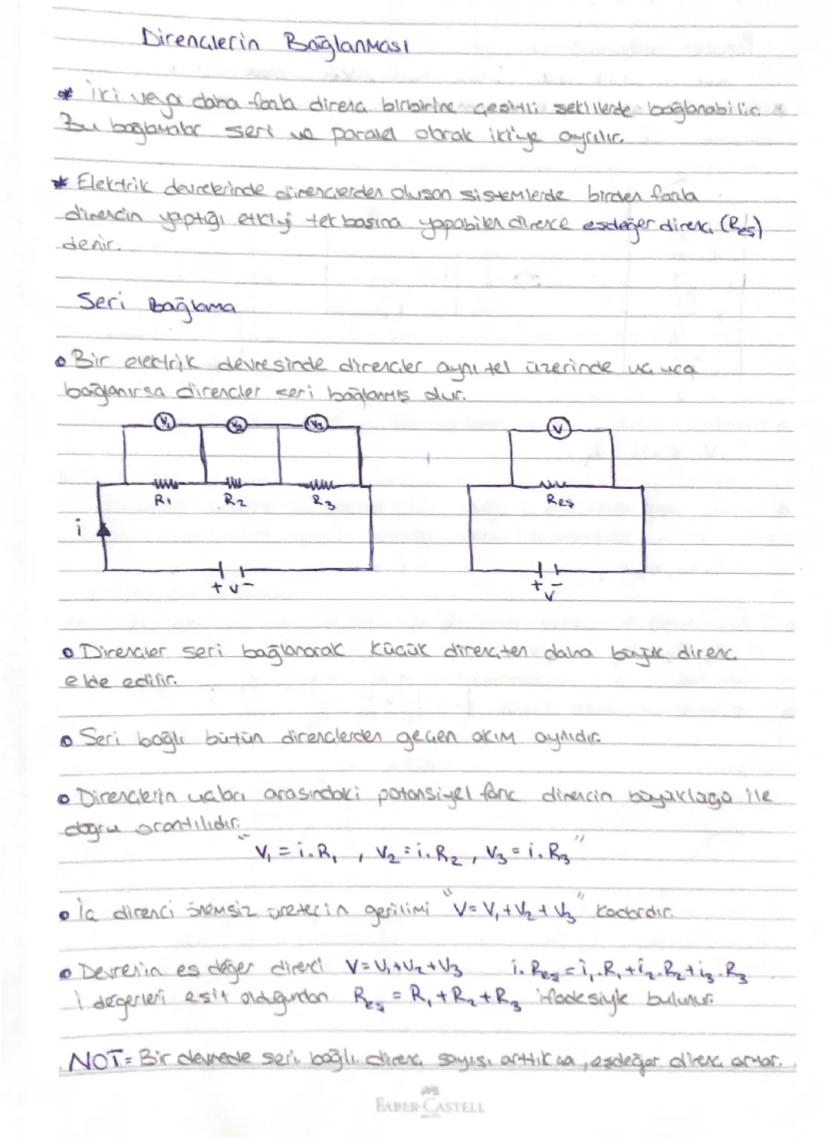 Dirençlerin Bağlanması
* İki veya daha fazla direnç birbirine çeşitli şekillerde bağlanabilir.
Bu bağlamalar seri ve paralel olarak ikiye ayrılır.
* Elektrik devrelerinde dirençlerden oluşan sistemlerde birden fazla
direncin yaptığı etkiyi tek başına yapabilen dirence eşdeğer direnç (Reş)
denir.
Seri Bağlama
• Bir elektrik devresinde dirençler aynı tel üzerinde uç uca
bağlanırsa dirençler seri bağlanmış olur.
V₁ V₂ V₃ V
R₁ R₂ R₃ Reş
i
+ V - + V -
• Dirençler seri bağlanarak küçük dirençten daha büyük direnç
elde edilir.
• Seri bağlı bütün dirençlerden geçen akım aynıdır.
• Dirençlerin uçları arasındaki potansiyel fark direncin büyüklüğü ile
doğru orantılıdır.
"V₁ = i.R₁ , V₂ = i.R₂ , V₃ = i.R₃"
• İç direnci önemsiz üretecin gerilimi "V = V₁ + V₂ + V₃" kadardır.
• Devrenin eş değer direnci V = V₁ + V₂ + V₃ i.Reş = i₁.R₁ + i₂.R₂ + i₃.R₃
i değerleri eşit olduğundan Reş = R₁ + R₂ + R₃ ifadesiyle bulunur.
NOT = Bir devrede seri bağlı direnç sayısı arttıkça, eşdeğer direnç artar.
FABER-CASTELL